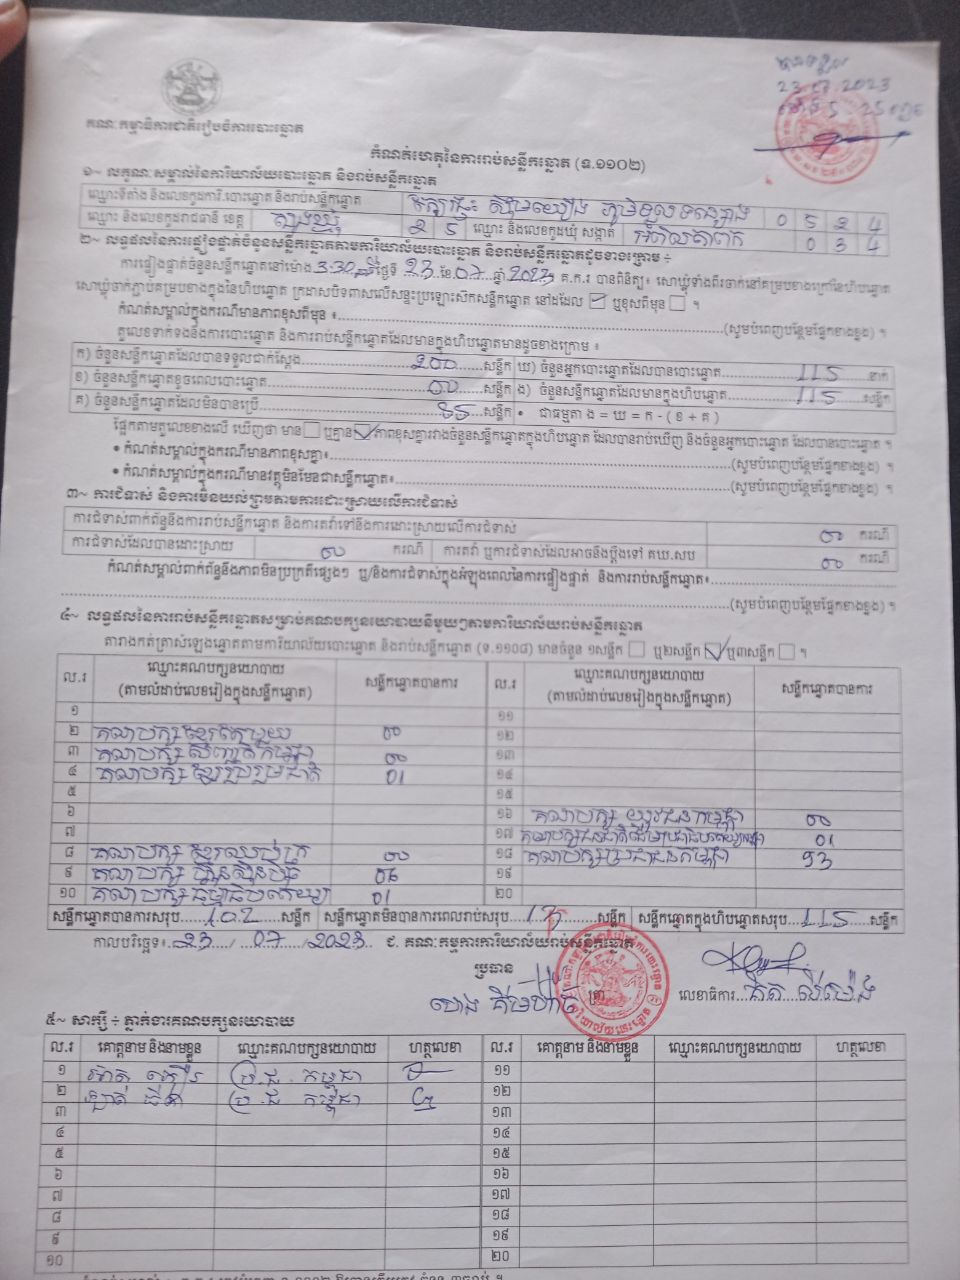 បានទទួល
23.07.2023
គណៈកម្មាធិការជាតិរៀបចំការបោះឆ្នោត
កំណត់ហេតុនៃការរាប់សន្លឹកឆ្នោត (ទ.១១០២)
១~ លក្ខណៈសម្គាល់នៃការិយាល័យបោះឆ្នោត និងរាប់សន្លឹកឆ្នោត
ឈ្មោះទីតាំង និងលេខកូដការិ.បោះឆ្នោត និងរាប់សន្លឹកឆ្នោត 0 5 2 4
ឈ្មោះ និងលេខកូដរាជធានី ខេត្ត ត្បូងឃ្មុំ 2 5 ឈ្មោះ និងលេខកូដឃុំ សង្កាត់ អំពិលតាពក 0 3 4
២~ លទ្ធផលនៃការផ្ទៀងផ្ទាត់ចំនួនសន្លឹកឆ្នោតតាមការិយាល័យបោះឆ្នោត និងរាប់សន្លឹកឆ្នោតដូចខាងក្រោម ÷
ការផ្ទៀងផ្ទាត់ចំនួនសន្លឹកឆ្នោតនៅម៉ោង 3:30 ថ្ងៃទី 23 ខែ 07 ឆ្នាំ 2023 គ.ក.រ បានពិនិត្យ៖ សោឃ្លុំទាំងពីរចាក់នៅគម្របខាងក្រៅនៃហិបឆ្នោត
សោឃ្លុំចាក់ភ្ជាប់គម្របខាងក្នុងនៃហិបឆ្នោត ក្រដាសបិទពាសលើសន្ទះប្រឡោះស៊កសន្លឹកឆ្នោត នៅដដែល ឬខុសពីមុន ។
កំណត់សម្គាល់ក្នុងករណីមានភាពខុសពីមុន ៖ (សូមបំពេញបន្ថែមផ្នែកខាងខ្នង) ។
តួលេខទាក់ទងនឹងការបោះឆ្នោត និងការរាប់សន្លឹកឆ្នោតដែលមានក្នុងហិបឆ្នោតមានដូចខាងក្រោម ៖
ក) ចំនួនសន្លឹកឆ្នោតដែលបានទទួលជាក់ស្តែង 200 សន្លឹក ឃ) ចំនួនអ្នកបោះឆ្នោតដែលបានបោះឆ្នោត 115 នាក់
ខ) ចំនួនសន្លឹកឆ្នោតខូចពេលបោះឆ្នោត 00 សន្លឹក ង) ចំនួនសន្លឹកឆ្នោតដែលមានក្នុងហិបឆ្នោត 115 សន្លឹក
គ) ចំនួនសន្លឹកឆ្នោតដែលមិនបានប្រើ 85 សន្លឹក • ជាធម្មតា ង = ឃ = ក - ( ខ + គ )
ផ្អែកតាមតួលេខខាងលើ ឃើញថា មាន ឬគ្មាន ភាពខុសគ្នារវាងចំនួនសន្លឹកឆ្នោតក្នុងហិបឆ្នោត ដែលបានរាប់ឃើញ និងចំនួនអ្នកបោះឆ្នោត ដែលបានបោះឆ្នោត ។
• កំណត់សម្គាល់ក្នុងករណីមានភាពខុសគ្នា៖ (សូមបំពេញបន្ថែមផ្នែកខាងខ្នង) ។
• កំណត់សម្គាល់ក្នុងករណីមានវត្ថុមិនមែនជាសន្លឹកឆ្នោត៖ (សូមបំពេញបន្ថែមផ្នែកខាងខ្នង) ។
៣~ ការជំទាស់ និងការមិនយល់ព្រមតាមការដោះស្រាយលើការជំទាស់
ការជំទាស់ពាក់ព័ន្ធនឹងការរាប់សន្លឹកឆ្នោត និងការតវ៉ាទៅនឹងការដោះស្រាយលើការជំទាស់ 00 ករណី
ការជំទាស់ដែលបានដោះស្រាយ 00 ករណី ការតវ៉ា ឬការជំទាស់ដែលអាចនឹងប្តឹងទៅ គឃ.សប 00 ករណី
កំណត់សម្គាល់ពាក់ព័ន្ធនឹងភាពមិនប្រក្រតីផ្សេងៗ ឬ/និងការជំទាស់ក្នុងអំឡុងពេលនៃការផ្ទៀងផ្ទាត់ និងការរាប់សន្លឹកឆ្នោត៖
(សូមបំពេញបន្ថែមផ្នែកខាងខ្នង) ។
៤~ លទ្ធផលនៃការរាប់សន្លឹកឆ្នោតសម្រាប់គណបក្សនយោបាយនីមួយៗតាមការិយាល័យរាប់សន្លឹកឆ្នោត
តារាងកត់ត្រាសំឡេងឆ្នោតតាមការិយាល័យបោះឆ្នោត និងរាប់សន្លឹកឆ្នោត (ទ.១១០៨) មានចំនួន ១សន្លឹក ឬ២សន្លឹក ឬ៣សន្លឹក ។
ល.រ ឈ្មោះគណបក្សនយោបាយ (តាមលំដាប់លេខរៀងក្នុងសន្លឹកឆ្នោត) សន្លឹកឆ្នោតបានការ ល.រ ឈ្មោះគណបក្សនយោបាយ (តាមលំដាប់លេខរៀងក្នុងសន្លឹកឆ្នោត) សន្លឹកឆ្នោតបានការ
១ ១១
២ គណបក្ស ខ្មែរតែមួយ 00 ១២
៣ គណបក្ស សញ្ជាតិកម្ពុជា 00 ១៣
៤ គណបក្ស ខ្មែររួបរួមជាតិ 01 ១៤
៥ ១៥
៦ ១៦ គណបក្ស យុវជនកម្ពុជា 00
៧ ១៧ 01
៨ គណបក្ស ខ្មែរឈប់ក្រ 00 ១៨ គណបក្សប្រជាជនកម្ពុជា 93
៩ គណបក្ស ហ្វ៊ុនស៊ិនប៉ិច 06 ១៩
១០ គណបក្ស ធម្មាធិបតេយ្យ 01 ២០
សន្លឹកឆ្នោតបានការសរុប 102 សន្លឹក សន្លឹកឆ្នោតមិនបានការពេលរាប់សរុប 13 សន្លឹក សន្លឹកឆ្នោតក្នុងហិបឆ្នោតសរុប 115 សន្លឹក
កាលបរិច្ឆេទ៖ 23 / 07 / 2023 ជ. គណៈកម្មការការិយាល័យរាប់សន្លឹកឆ្នោត
ប្រធាន
លេខាធិការ
៥~ សាក្សី ÷ ភ្នាក់ងារគណបក្សនយោបាយ
ល.រ គោត្តនាម និងនាមខ្លួន ឈ្មោះគណបក្សនយោបាយ ហត្ថលេខា ល.រ គោត្តនាម និងនាមខ្លួន ឈ្មោះគណបក្សនយោបាយ ហត្ថលេខា
១ ប្រ.ជ កម្ពុជា ១១
២ ប្រ.ជ កម្ពុជា ១២
៣ ១៣
៤ ១៤
៥ ១៥
៦ ១៦
៧ ១៧
៨ ១៨
៩ ១៩
១០ ២០